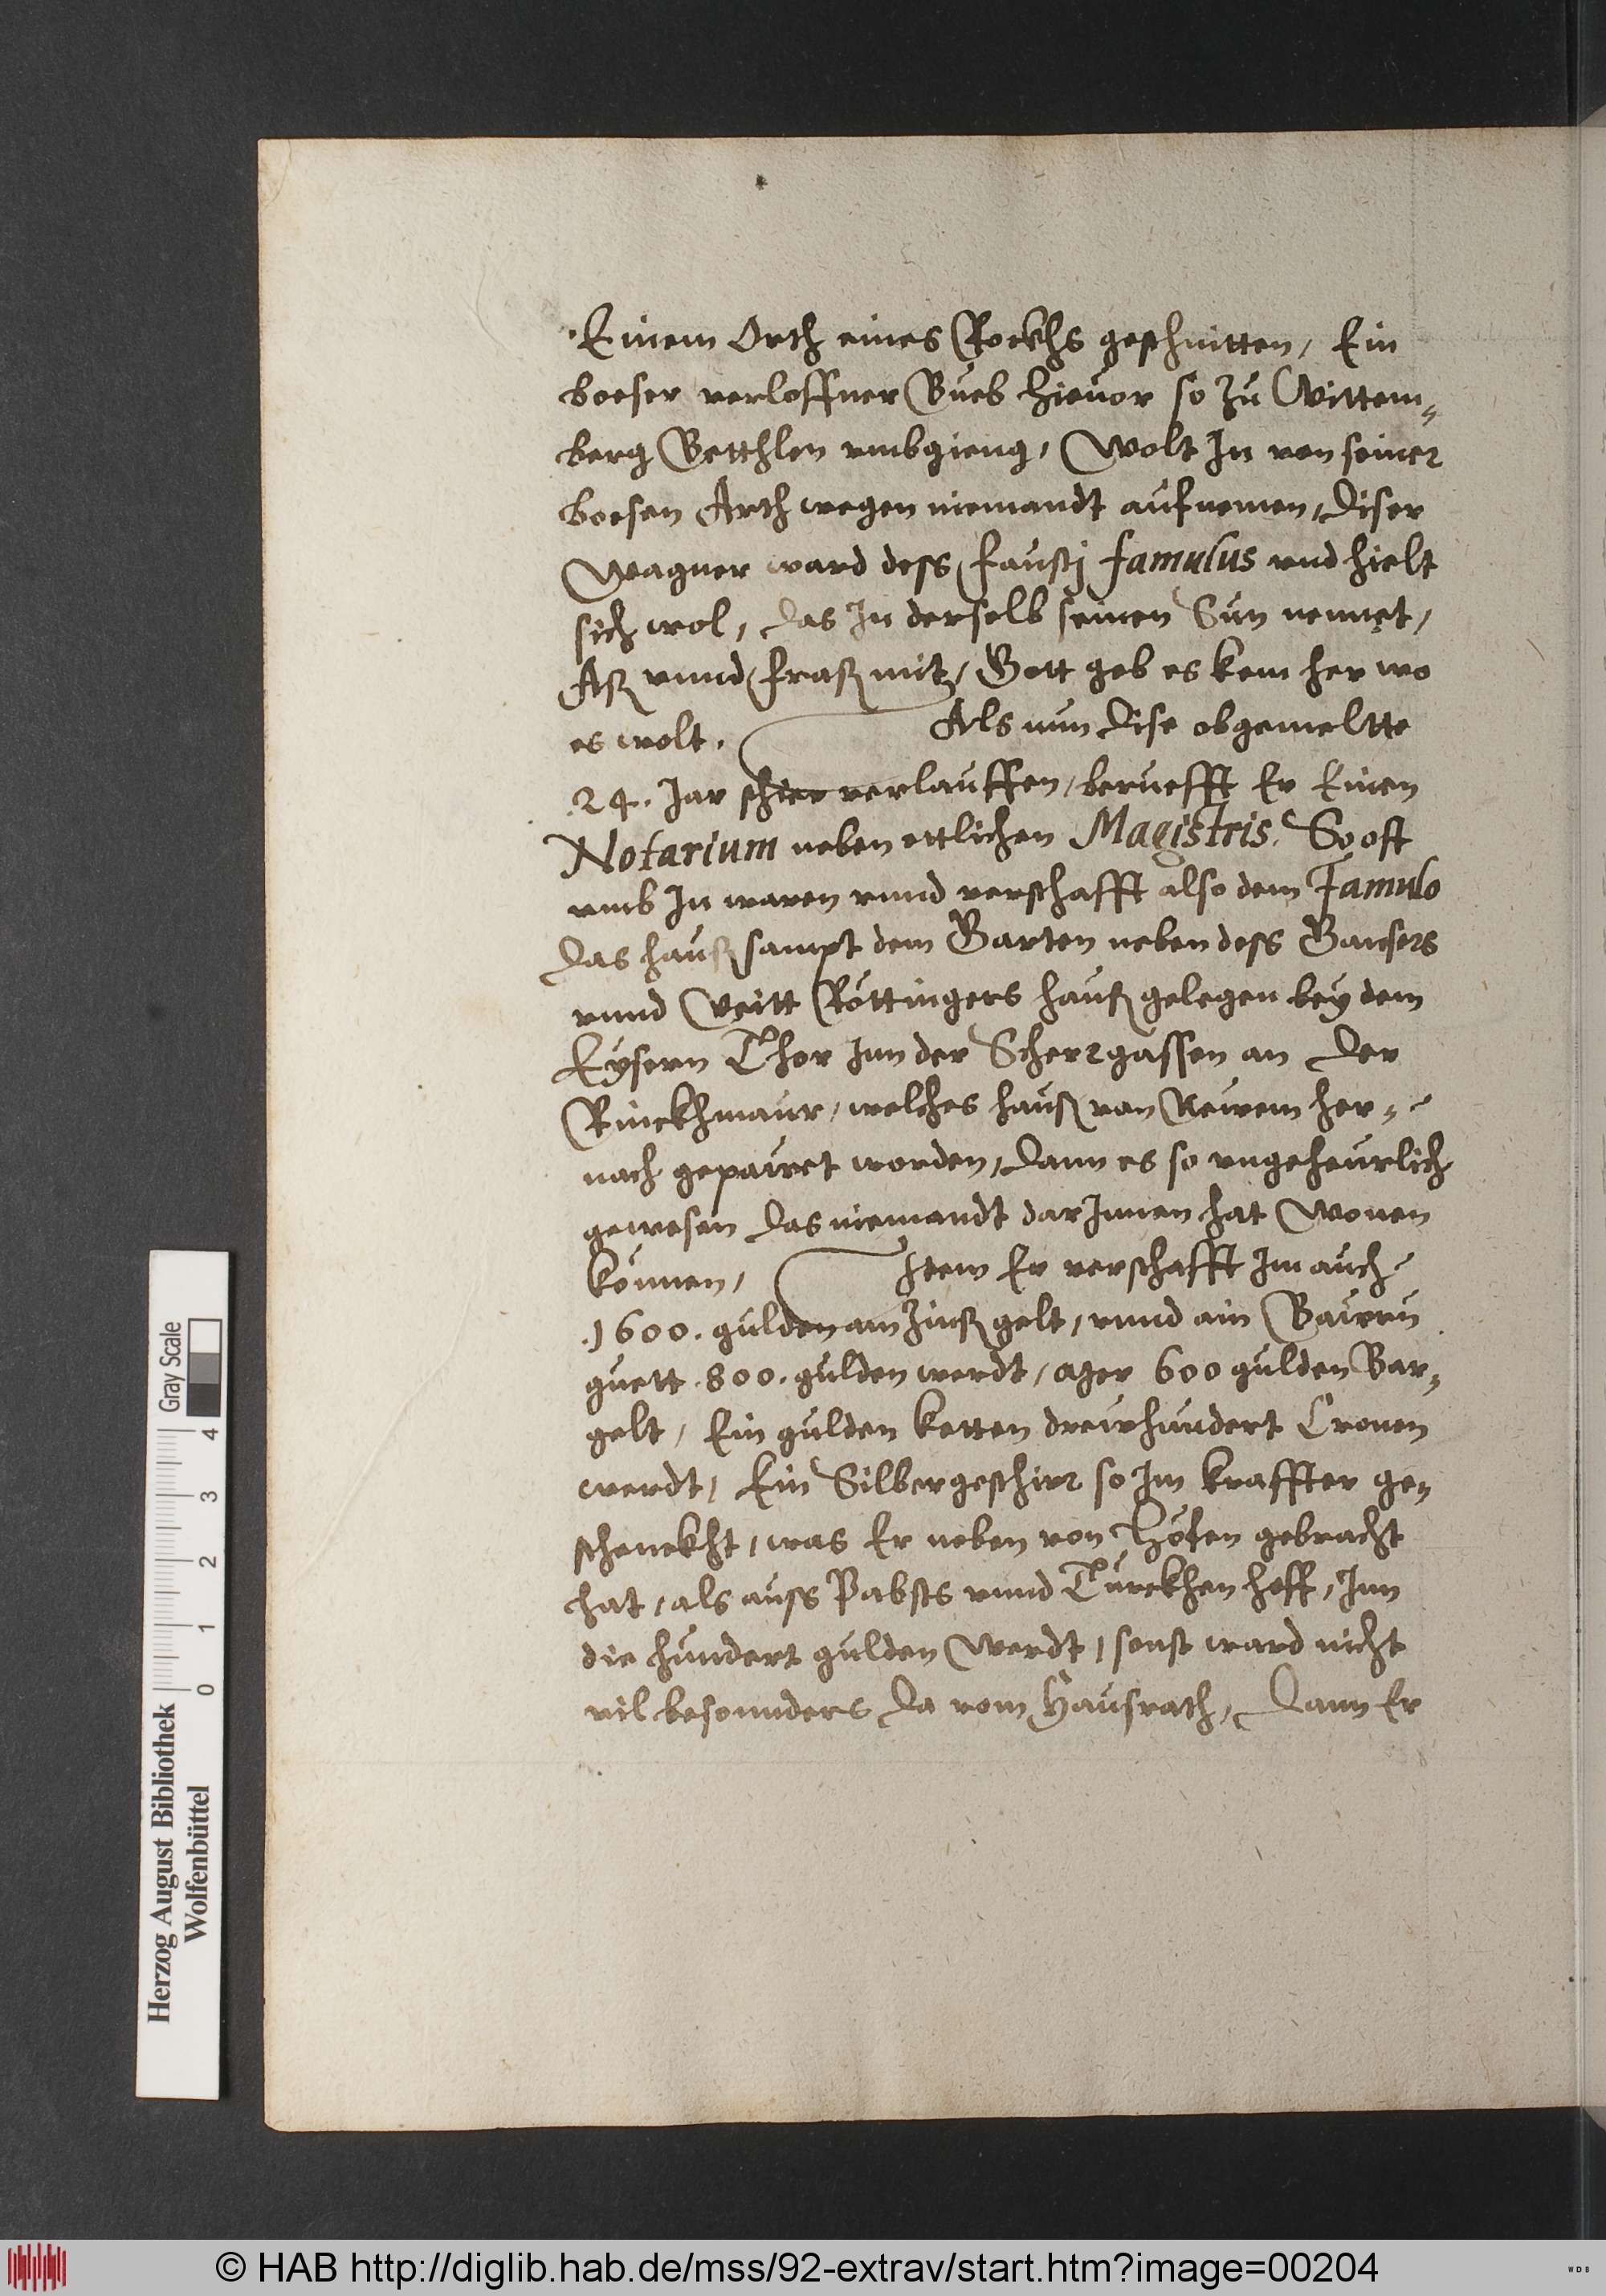 Einem Orth eines Rockhs geschnitten, Ein
boeser verloffner Bueb hieuor so zu Wittem„
berg Betthlen vmbgieng, Wolt In von seiner
boesen Arth wegen niemandt aufnemen, Diser
Wagner ward dess faustj famulus vnd hielt
sich wol, Das In derselb seinen Sun nennet,
Aß vnnd fraß mit, Gott geb es kem her wo
es wolt. Als nun Dise obgemeltte
.24. Jar schier verlauffen, beruefft Er Einen
Notarium neben ettlichen Magistris. So oft
vmb In waren vnnd verschafft also dem Famulo
Das hauß sampt dem Garten neben dess Gansers
vnnd Veitt Röttingers hauß gelegen bey dem
Eysern Thor Inn der Scherrgassen an Der
Rinckhmaur, welches hauß von Newem her„
nach gepawet worden, Dann es so vngeheurlich
gewesen Das niemandt dar Innen hat Wonen
können, Item Er verschafft Im auch
.1600. gulden am Zinß gelt, vnnd ain Bawrn
guett .800. gulden werdt, 600 gulden Bar„
gelt, Ein gulden ketten drewhundert Cronen
werdt, Ein Silbergeschirr so Im kraffter ge„
schenckht, was Er neben von Höfen gebracht
hat, als auss Pabsts vnnd Türckhen hoff, Inn
die hundert gulden Werdt, sonst ward nicht
vil besonnders Da vom Hausrath, Dann Er
Herzog August Bibliothek
Wolfenbüttel
Gray Scale
0 1 2 3 4
© HAB http://diglib.hab.de/mss/92-extrav/start.htm?image=00204
WDB